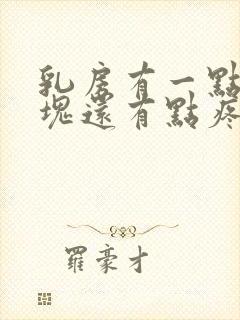 乳房有一點
塊還有點疼
羅豪才